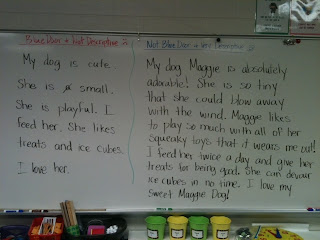 Blue Door + Not Descriptive
My dog is cute.
She is small.
She is playful. I
feed her. She likes
treats and ice cubes.
I love her.
Not Blue Door + Very Descriptive
My dog Maggie is absolutely
adorable! She is so tiny
that she could blow away
with the wind. Maggie likes
to play so much with all of her
squeaky toys that it wears me out!
I feed her twice a day and give her
treats for being good. She can devour
ice cubes in no time. I love my
sweet Maggie Dog!